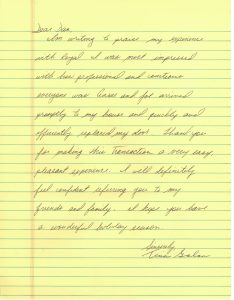 Dear Dan,
I am writing to praise my experience
with Royal. I was most impressed
with how professional and courteous
everyone was. and arrived
promptly to my house and quickly and
efficiently replaced my door. Thank you
for making this transaction a very easy,
pleasant experience. I will definitely
feel confident referring you to my
friends and family. I hope you have
a wonderful holiday season.
Sincerely,